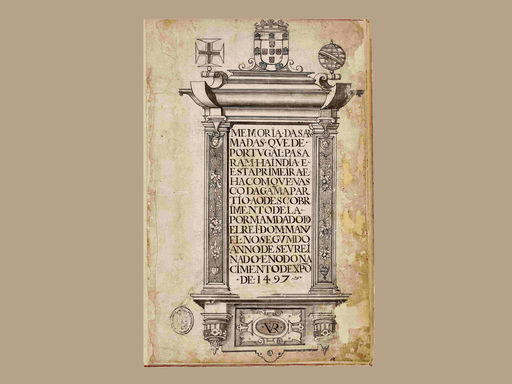 MEMORIA·DAS·A
MADAS·QVE·DE·
PORTVGAL·PASA
RAM·HA·INDIA·E·
ESTA·PRIMEIRA·E·
HA·COM·QVE·VAS
CO·DA·GAMA·PAR
TIO·AO·DESCOBR
IMENTO·DELA·
POR·MAMDADO·D
ELREI·DOM·MANV
EL·NO·SEGVMDO
ANNO·DE·SEV·REI
NADO·E·NO·DO·NA
CIMENTO·DE·XPO
·DE·1497·